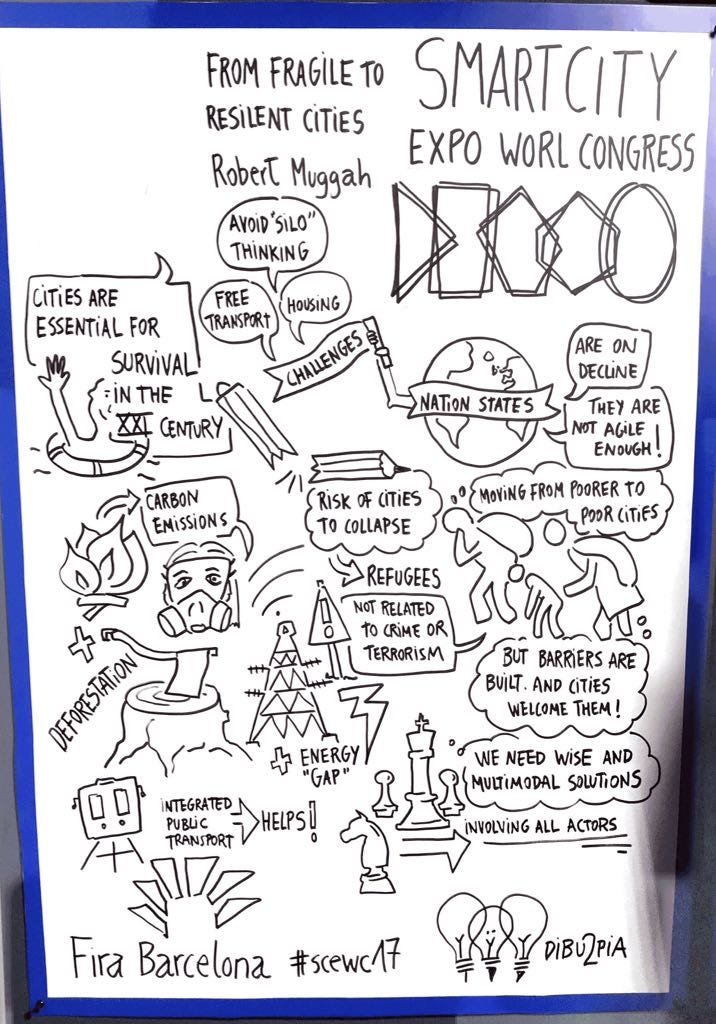 FROM FRAGILE TO
RESILENT CITIES
Robert Muggah
SMARTCITY
EXPO WORL CONGRESS
AVOID "SILO"
THINKING
FREE
TRANSPORT
HOUSING
CHALLENGES
CITIES ARE
ESSENTIAL FOR
SURVIVAL
IN THE
XXI CENTURY
NATION STATES
ARE ON
DECLINE
THEY ARE
NOT AGILE
ENOUGH!
CARBON
EMISSIONS
RISK OF CITIES
TO COLLAPSE
MOVING FROM POORER TO
POOR CITIES
REFUGEES
NOT RELATED
TO CRIME OR
TERRORISM
BUT BARRIERS ARE
BUILT. AND CITIES
WELCOME THEM!
+
DEFORESTATION
+ ENERGY
"GAP"
WE NEED WISE AND
MULTIMODAL SOLUTIONS
INVOLVING ALL ACTORS
INTEGRATED
PUBLIC
TRANSPORT
HELPS!
Fira Barcelona #scewc17
DiBU2PiA